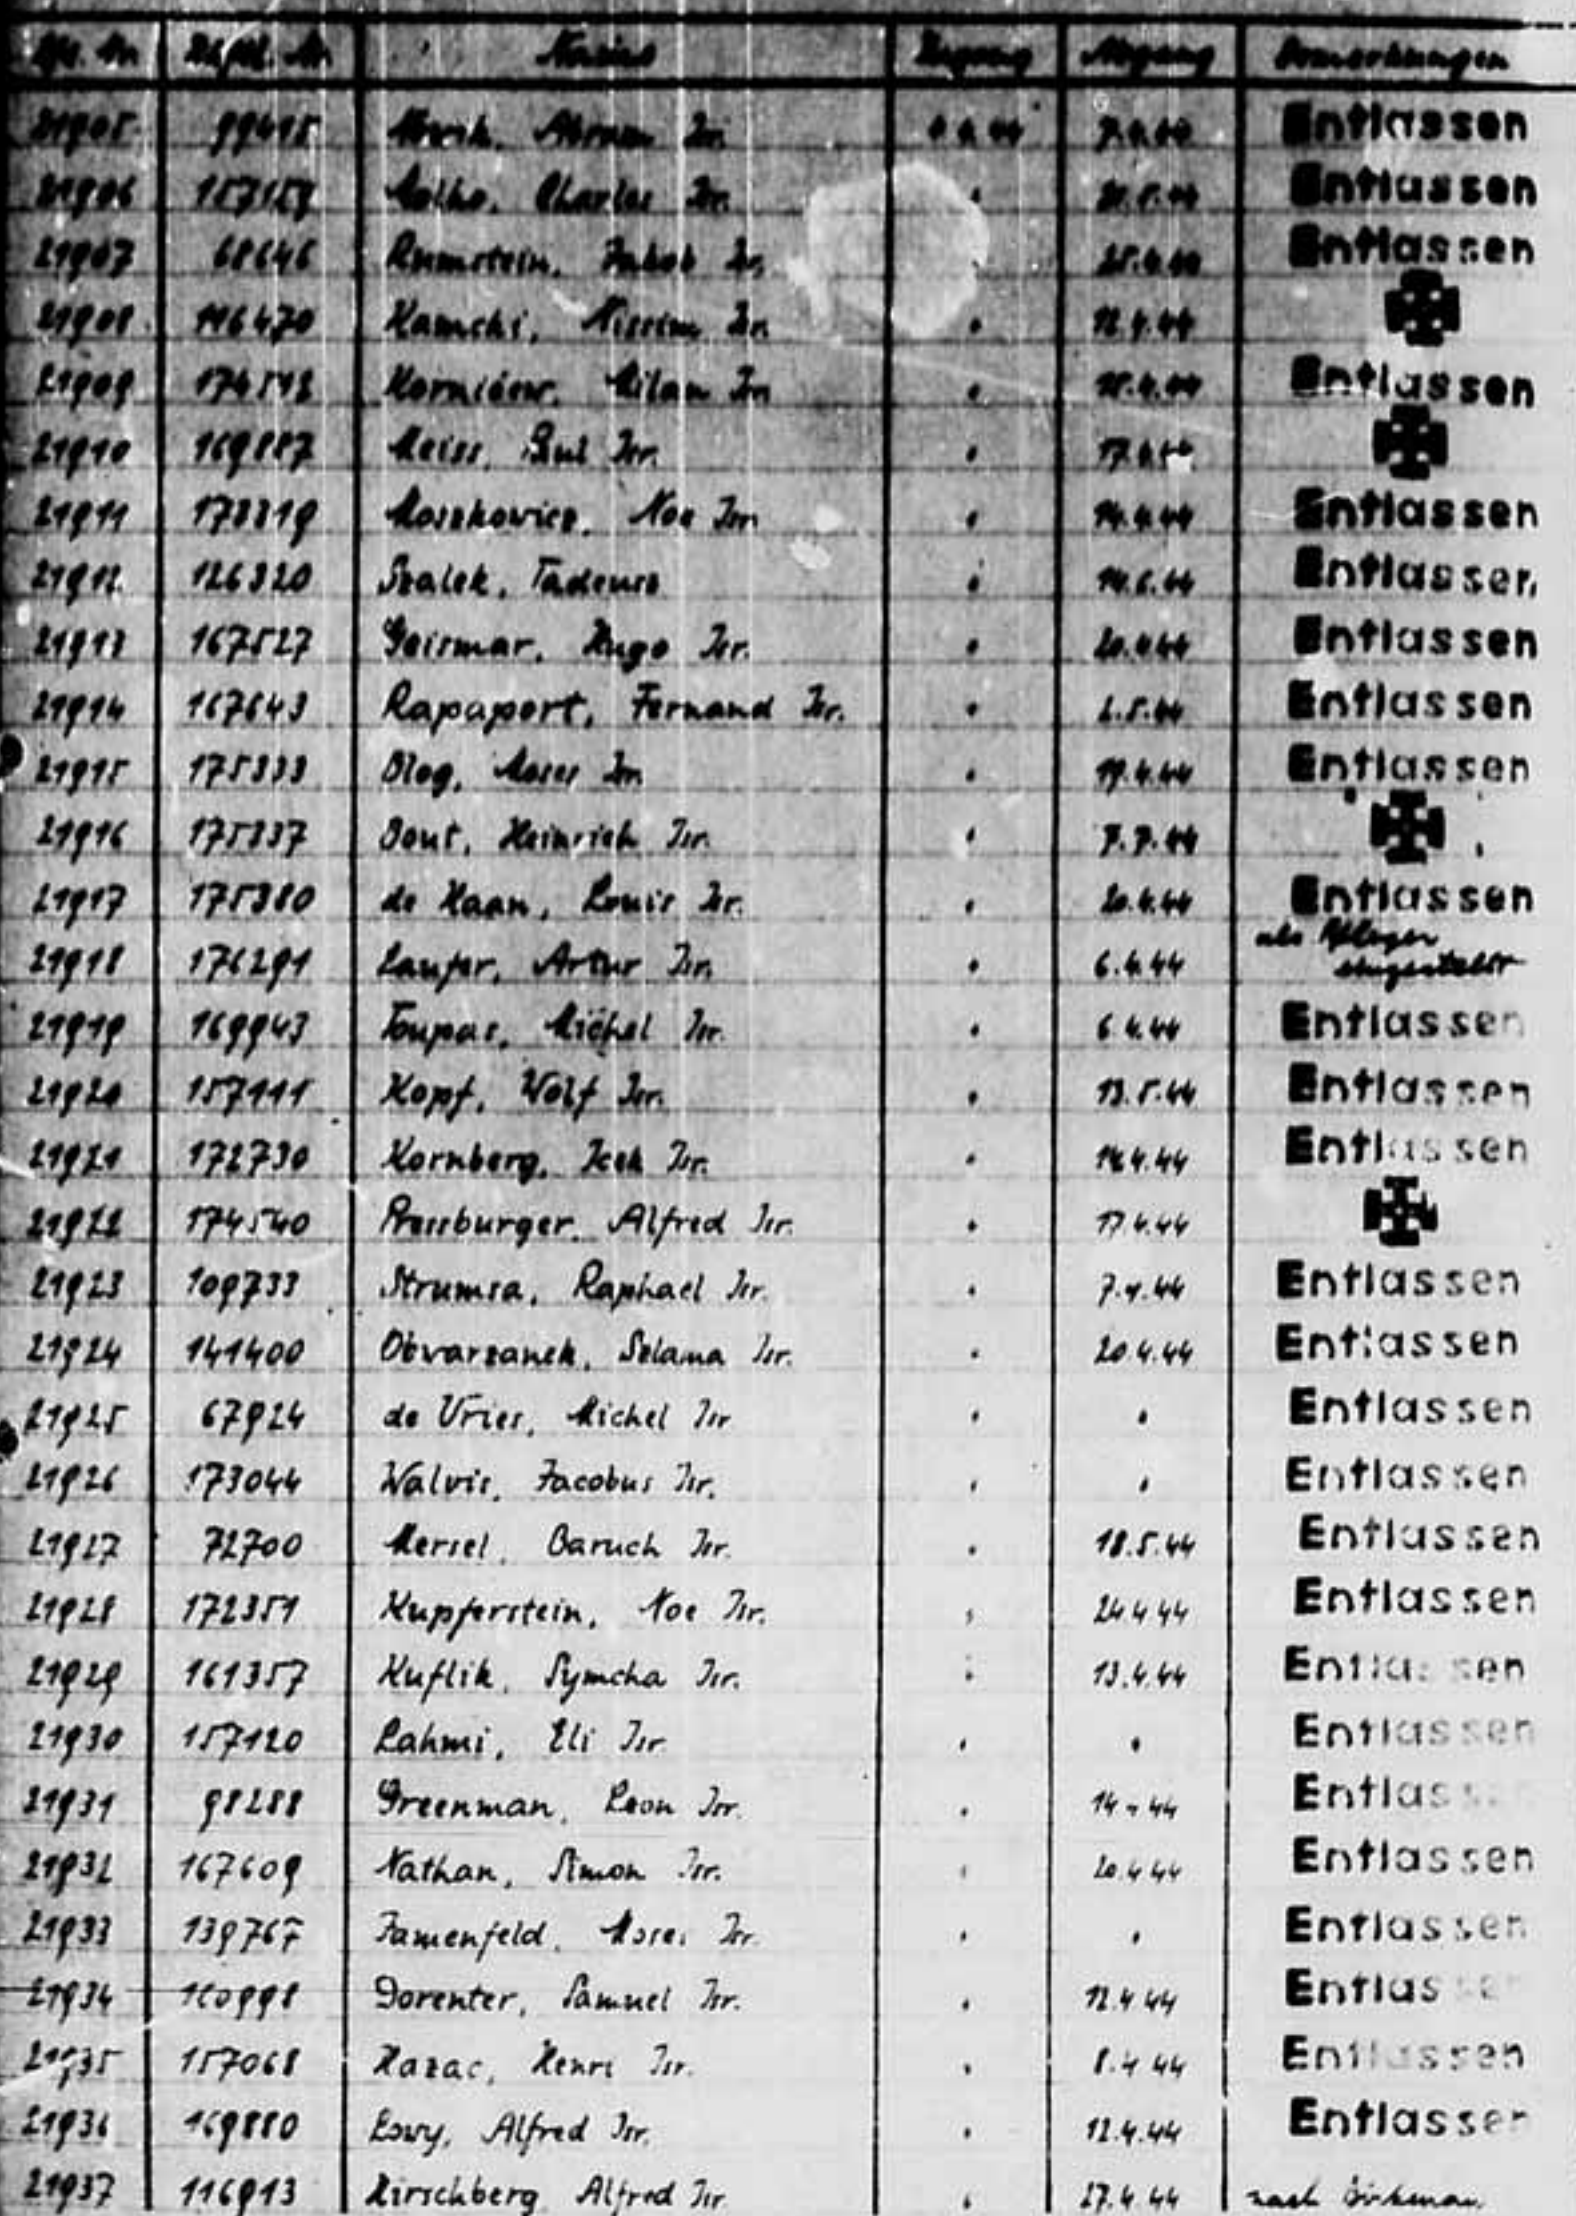 Lfd. Nr. Häftl. Nr. Name Zugang Abgang Bemerkungen
21905 99415 Entlassen
21906 157159 Charles Isr. Entlassen
21907 68646 Jakob Isr. Entlassen
21908 116470 Kamchi, Nissim Isr. " 12.4.44
21909 174512 Milan Isr. " Entlassen
21910 169887 Meiss, Paul Isr. " 17.4.44
21911 173319 Moszkowicz, Noe Isr. " 14.4.44 Entlassen
21912 126320 Szalek, Tadeusz " 14.6.44 Entlassen
21913 167527 Geismar, Hugo Isr. " 20.4.44 Entlassen
21914 167643 Rapaport, Fernand Isr. " 2.5.44 Entlassen
21915 175333 Blog, Moses Isr. " 19.4.44 Entlassen
21916 175337 Bont, Heinrich Isr. " 7.7.44
21917 175380 de Haan, Louis Isr. " 20.4.44 Entlassen
21918 176291 Laufer, Artur Isr. " 6.4.44 als Pfleger eingestellt
21919 169943 Michel Isr. " 6.4.44 Entlassen
21920 157111 Kopf, Wolf Isr. " 13.5.44 Entlassen
21921 172730 Kornberg, Icek Isr. " Entlassen
21922 174540 Pressburger, Alfred Isr. " 17.4.44
21923 109733 Strumsa, Raphael Isr. " 7.4.44 Entlassen
21924 141400 Obwarzanek, Szlama Isr. " 20.4.44 Entlassen
21925 67924 de Vries, Michel Isr " " Entlassen
21926 173044 Walvis, Jacobus Isr. " " Entlassen
21927 72700 Mersel, Baruch Isr. " 18.5.44 Entlassen
21928 172351 Kupferstein, Noe Isr. " 24.4.44 Entlassen
21929 161357 Kuflik, Symcha Isr. " 13.4.44 Entlassen
21930 157120 Lahmi, Eli Isr. " " Entlassen
21931 98288 Greenman, Leon Isr. " Entlassen
21932 167609 Nathan, Simon Isr. " 20.4.44 Entlassen
21933 139767 Famenfeld, Moses Isr. " " Entlassen
21934 160998 Dorenter, Samuel Isr. " 12.4.44 Entlassen
21935 157068 Hazac, Henri Isr. " 8.4.44 Entlassen
21936 169880 Lowy, Alfred Isr. " 12.4.44 Entlassen
21937 116913 Hirschberg Alfred Isr. " 27.4.44 nach Birkenau